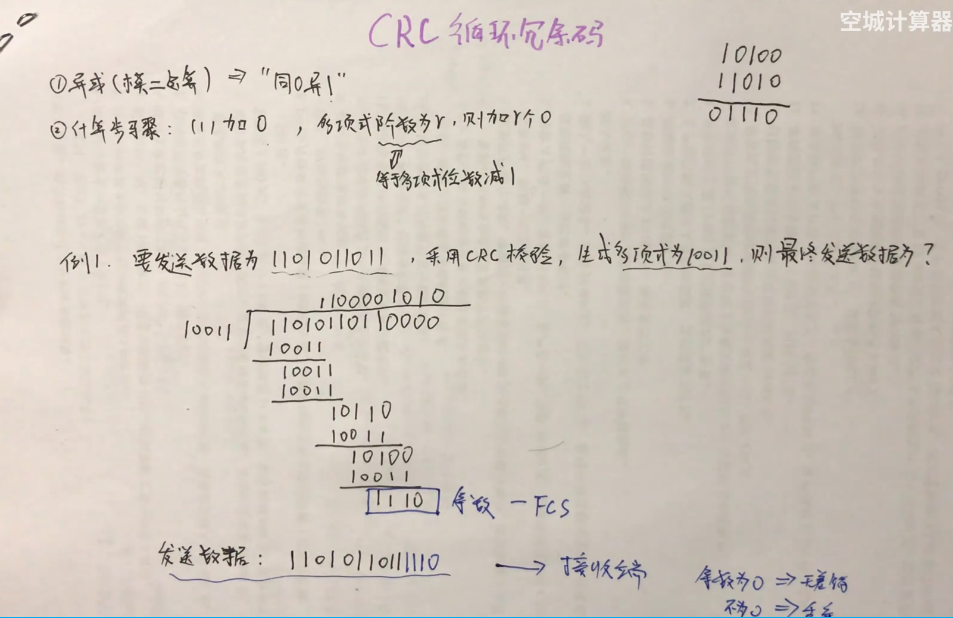 空城计算器
CRC 循环冗余码
①异或(模二运算) ⇒ "同0异1"
10100
11010
01110
②计算步骤: (1) 加0 , 多项式阶数为r, 则加r个0
等于多项式位数减1
例1. 要发送数据为 1101011011 , 采用CRC校验, 生成多项式为10011, 则最终发送数据为?
1100001010
10011 11010110110000
10011
10011
10011
10110
10011
10100
10011
1110 余数 — FCS
发送数据: 11010110111110 → 接收端
余数为0 ⇒ 无差错
不为0 ⇒